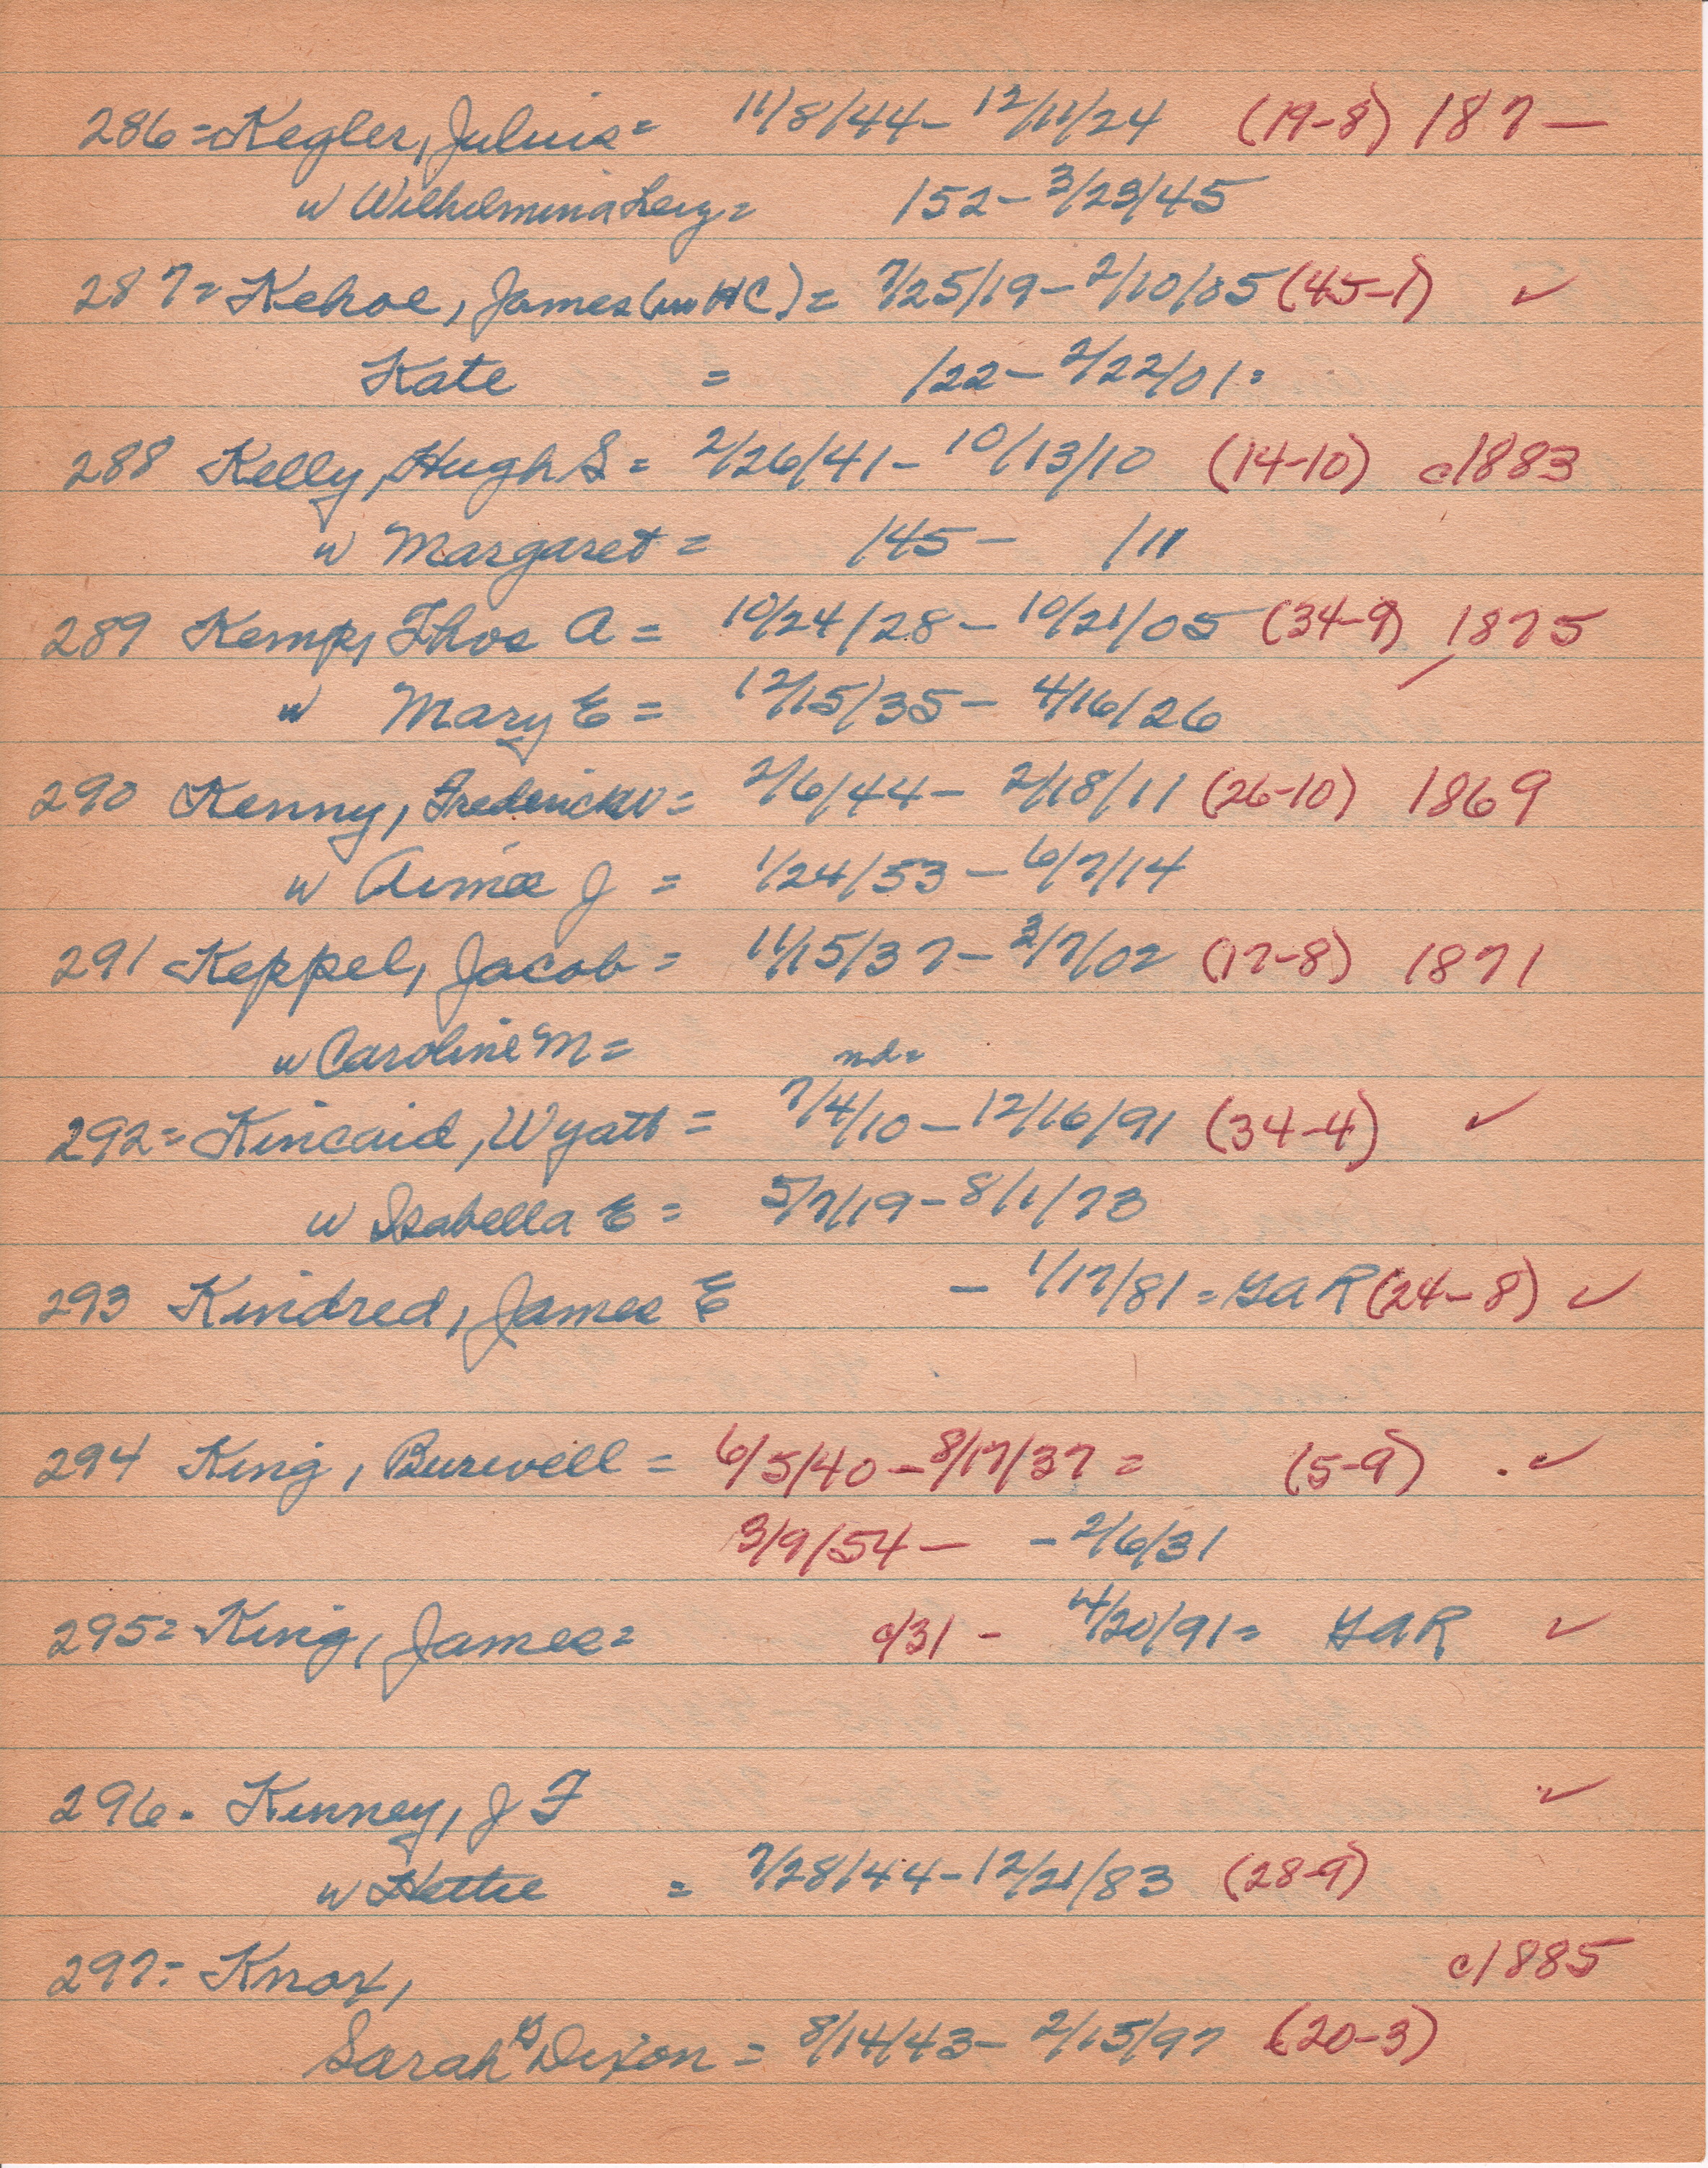 286 = Kegler, Julius = 11/8/44 - 12/11/24 (19-8) 187—
w Wilhelmina = /52 - 3/23/45
287 = Kehoe, James (in HC) = 7/25/19 - 2/10/85 (45-1) ✓
Kate = /22 - 2/22/01 =
288 Kelly, Hugh S = 2/26/41 - 10/13/10 (14-10) c/1883
w Margaret = /45 - /11
289 Kemp, Thos A = 10/24/28 - 10/21/05 (34-9) 1875
w Mary E = 12/15/35 - 4/16/26
290 Kenny, Frederick W = 2/6/44 - 2/18/11 (26-10) 1869
w Aimee J = 1/24/53 - 6/7/14
291 Keppel, Jacob = 11/15/37 - 3/7/02 (17-8) 1871
w Caroline M = nd =
292 = Kincaid, Wyatt = 7/4/10 - 12/16/91 (34-4) ✓
w Isabella E = 5/7/19 - 8/1/73
293 Kindred, James E - 1/17/81 = GAR (24-8) ✓
294 King, Burwell = 6/5/40 - 8/17/37 = (5-9) . ✓
3/9/54 - - 2/6/31
295 = King, James = c/31 - 4/20/91 = GAR ✓
296 - Kinney, J F ✓
w Hettie = 7/28/44 - 12/21/83 (28-9)
297 = Knox, c/1885
Sarah Dixon = 8/14/43 - 2/15/97 (20-3)